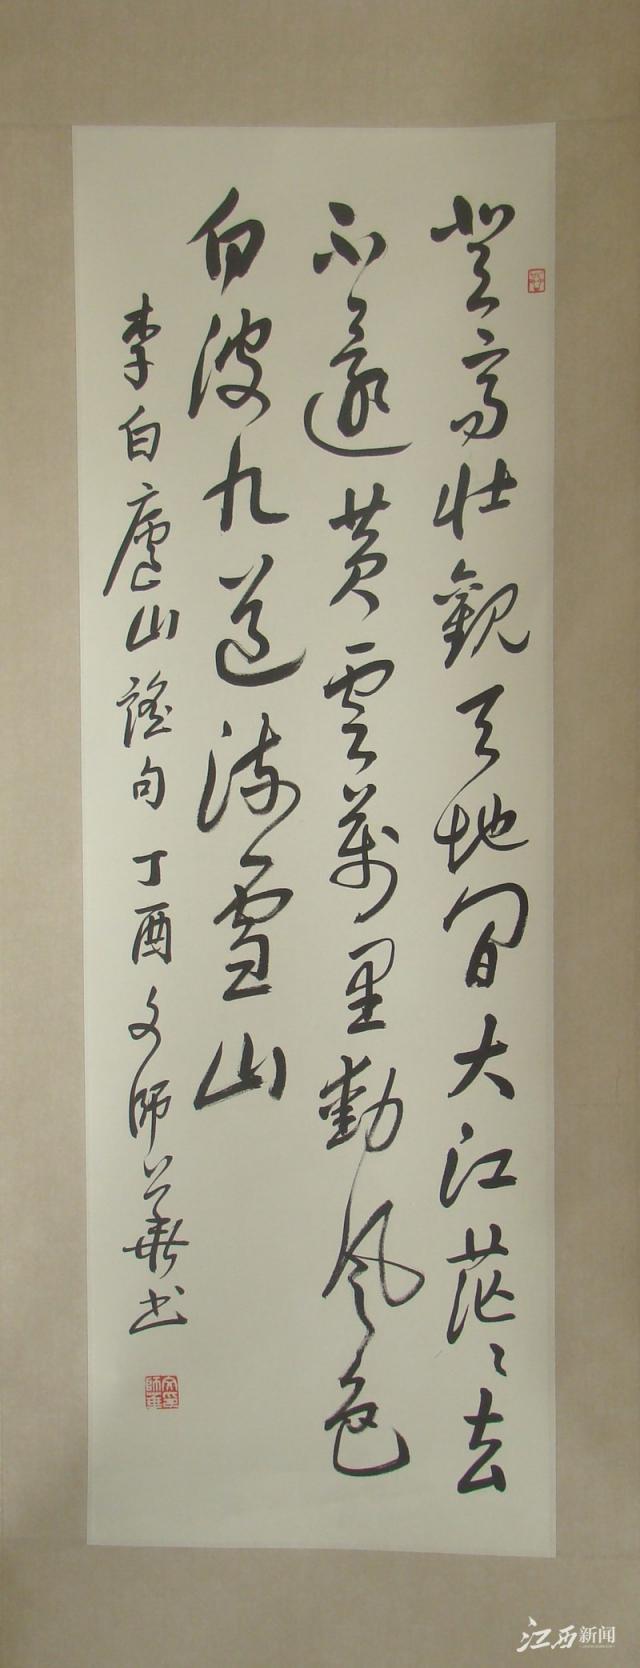 登高壮觀天地間大江茫〻去
不還黄雲萬里動風色
白波九道流雪山
李白廬山謠句丁酉文師華書
江西新闻